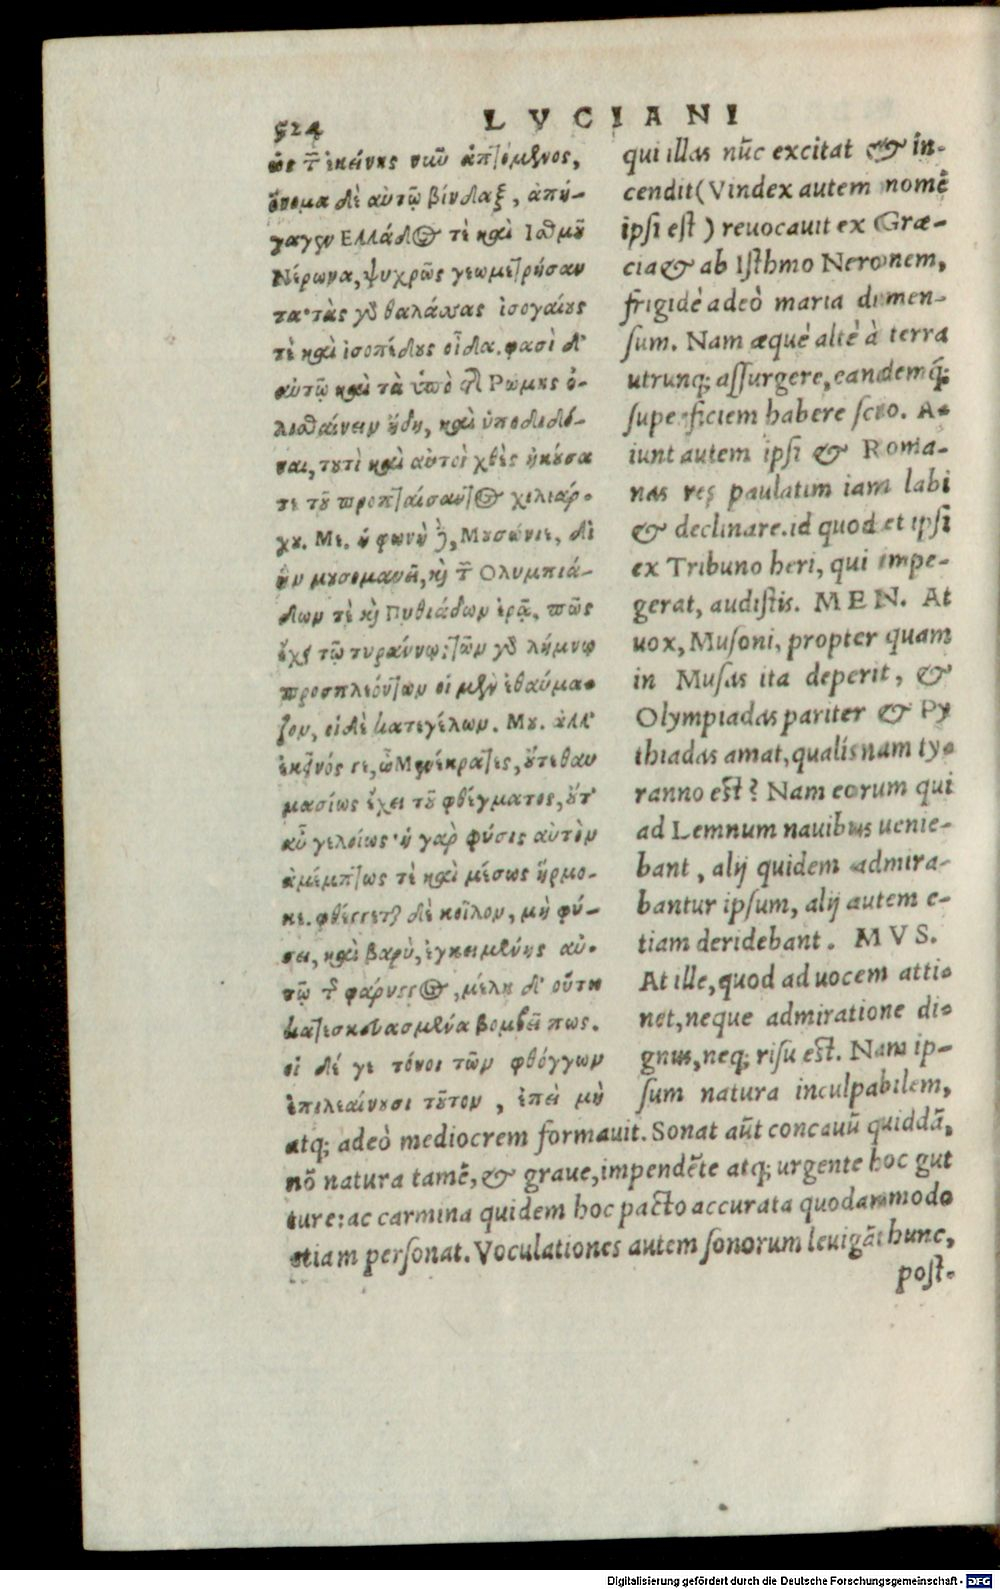 524 LVCIANI
ὁς τ̄ ἐκείνης νιῶ ἁπτόμενος,
ὄνομα δὲ αὐτῷ βίνδαξ, ἀπή-
γαγεν Ελλάδος τὲ καὶ Ισθμοῦ
Νέρωνα, ψυχρῶς γεωμετρήσαν
τα· τὰς γδ θαλάσσας ἰσογαίους
τὲ καὶ ἰσοπέδους οἶδα. φασὶ δ'
αὐτῷ καὶ τὰ ὑπὸ τῆ Ρώμης ὀ-
λισθαίνειν ἤδη, καὶ ὑποδιδό-
ναι, τουτὶ καὶ αὐτοὶ χθὲς ἠκούσα
τε τοῦ προπταίσαντος χιλιάρ-
χου. Με. ἡ φωνὴ ϳ, Μουσώνιε, δι
ἣν μουσομανεῖ, κὶ τ̄ Ολυμπιά-
δων τὲ κὶ Πυθιάδων ἐρᾷ, πῶς
ἔχει τῷ τυράννῳ; τῶν γδ λήμνῳ
προσπλεόντων οἱ μὲν ἐθαύμα-
ζον, οἱ δὲ κατεγέλων. Μου. ἀλλ'
ἐκεῖνός γε, ὦ Μενέκρατες, ὄυτε θαυ
μασίως ἔχει τοῦ φθέγματος, ὄυτ'
αὖ γελοίως· ἡ γαρ φύσις αὐτὸν
ἀμέμπτως τὲ καὶ μέσως ἥρμο-
κε. φθέγγεται δὲ κοῖλον, μὴ φύ-
σει, καὶ βαρὺ, ἐγκειμένης αὐ-
τῷ τ̄ φάρυγγος, μέλη δ' οὕτω
κατεσκευασμένα βομβεῖ πως.
οἱ δέ γε τόνοι τῶν φθόγγων
ἐπιλεαίνουσι τοῦτον, ἐπεὶ μὴ
qui illas nūc excitat & in-
cendit (Vindex autem nomē
ipsi est) reuocauit ex Græ-
cia & ab Isthmo Neronem,
frigidè adeò maria dimen-
sum. Nam æquè altè à terra
utrunq; assurgere, eandemq́;
superficiem habere scio. A-
iunt autem ipsi & Roma-
nas res paulatim iam labi
& declinare. id quod et ipsi
ex Tribuno heri, qui impe-
gerat, audistis. MEN. At
uox, Musoni, propter quam
in Musas ita deperit, &
Olympiadas pariter & Py
thiadas amat, qualisnam ty-
ranno est? Nam eorum qui
ad Lemnum nauibus uenie-
bant, alij quidem admira-
bantur ipsum, alij autem e-
tiam deridebant. MVS.
At ille, quod ad uocem atti-
net, neque admiratione di-
gnus, neq; risu est. Nam ip-
sum natura inculpabilem,
atq; adeò mediocrem formauit. Sonat aūt concauū quiddā,
nō natura tamē, & graue, impendēte atq; urgente hoc gut
ture: ac carmina quidem hoc pacto accurata quodammodo
etiam personat. Voculationes autem sonorum leuigāt hunc,
post-
Digitalisierung gefördert durch die Deutsche Forschungsgemeinschaft - DFG